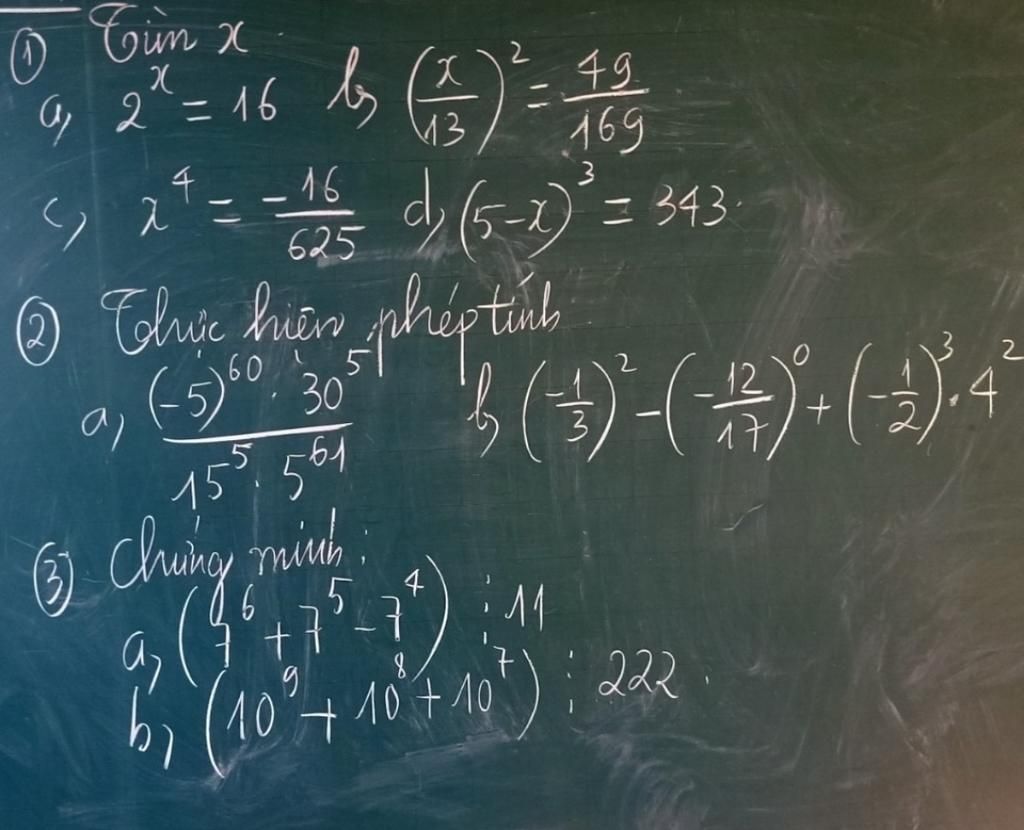 ① Tìm x
a, 2^x = 16 b, (x/13)^2 = 49/169
c, x^4 = -16/625 d, (5-x)^3 = 343.
② Thực hiện phép tính
a, ((-5)^60 . 30^5)/(15^5 . 5^61) b, (-1/3)^2 - (-12/17)^0 + (-1/2)^3 . 4^2
③ Chứng minh:
a, (7^6 + 7^5 - 7^4) ⋮ 11
b, (10^9 + 10^8 + 10^7) ⋮ 222.